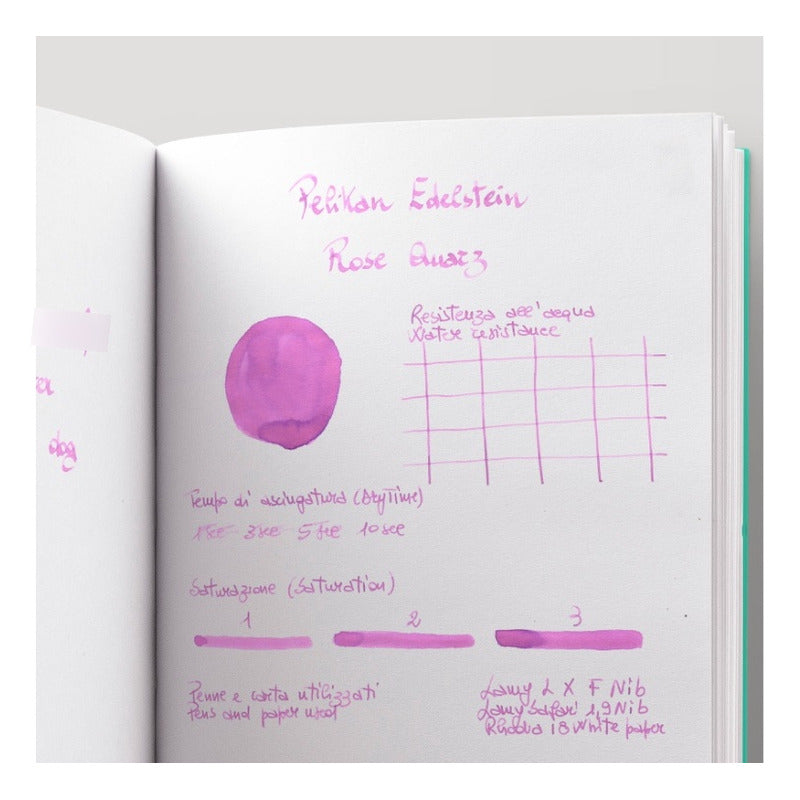 dog
Pelikan Edelstein
Rose Quarz
Resistenza all'acqua
Water resistance
Tempo di asciugatura (DryTime)
1sec 3sec 5sec 10sec
Saturazione (Saturation)
1 2 3
Penne e carta utilizzati
Pens and paper used
Lamy L X F Nib
Lamy Safari 1,9 Nib
Rhodia 18 White paper